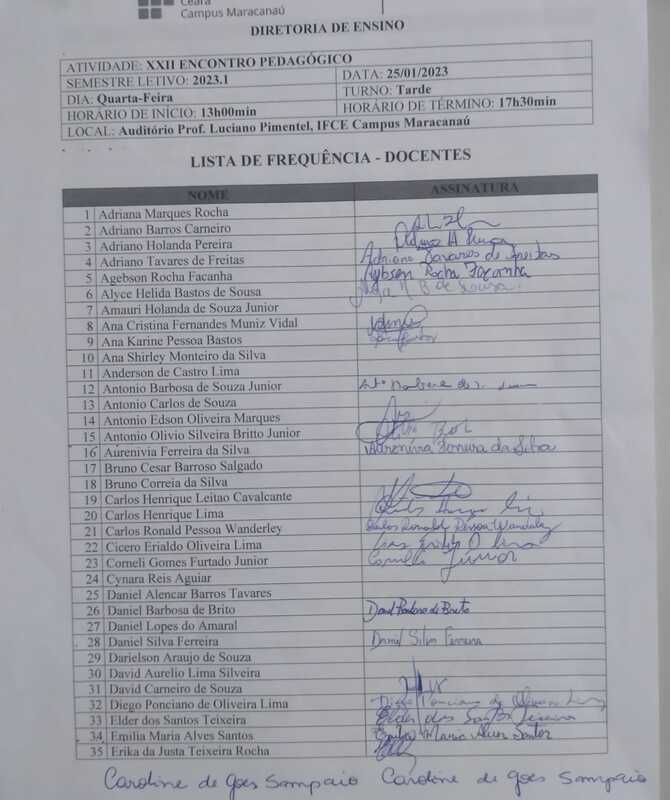 Ceará
Campus Maracanaú
DIRETORIA DE ENSINO
ATIVIDADE: XXII ENCONTRO PEDAGÓGICO
SEMESTRE LETIVO: 2023.1 DATA: 25/01/2023
DIA: Quarta-Feira TURNO: Tarde
HORÁRIO DE INÍCIO: 13h00min HORÁRIO DE TÉRMINO: 17h30min
LOCAL: Auditório Prof. Luciano Pimentel, IFCE Campus Maracanaú
LISTA DE FREQUÊNCIA - DOCENTES
NOME ASSINATURA
1 Adriana Marques Rocha
2 Adriano Barros Carneiro
3 Adriano Holanda Pereira
4 Adriano Tavares de Freitas Adriano Tavares de Freitas
5 Agebson Rocha Facanha Agebson Rocha Façanha
6 Alyce Helida Bastos de Sousa
7 Amauri Holanda de Souza Junior
8 Ana Cristina Fernandes Muniz Vidal
9 Ana Karine Pessoa Bastos
10 Ana Shirley Monteiro da Silva
11 Anderson de Castro Lima
12 Antonio Barbosa de Souza Junior
13 Antonio Carlos de Souza
14 Antonio Edson Oliveira Marques
15 Antonio Olivio Silveira Britto Junior
16 Aurenivia Ferreira da Silva Aurenívia Ferreira da Silva
17 Bruno Cesar Barroso Salgado
18 Bruno Correia da Silva
19 Carlos Henrique Leitao Cavalcante
20 Carlos Henrique Lima
21 Carlos Ronald Pessoa Wanderley Carlos Ronald Pessoa Wanderley
22 Cicero Erialdo Oliveira Lima
23 Corneli Gomes Furtado Junior Corneli Júnior
24 Cynara Reis Aguiar
25 Daniel Alencar Barros Tavares
26 Daniel Barbosa de Brito Daniel Barbosa de Brito
27 Daniel Lopes do Amaral
28 Daniel Silva Ferreira Daniel Silva Ferreira
29 Darielson Araujo de Souza
30 David Aurelio Lima Silveira
31 David Carneiro de Souza
32 Diego Ponciano de Oliveira Lima Diego Ponciano de Oliveira Lima
33 Elder dos Santos Teixeira Elder dos Santos Teixeira
34 Emilia Maria Alves Santos Emilia Maria Alves Santos
35 Erika da Justa Teixeira Rocha
Caroline de Goes Sampaio Caroline de Goes Sampaio